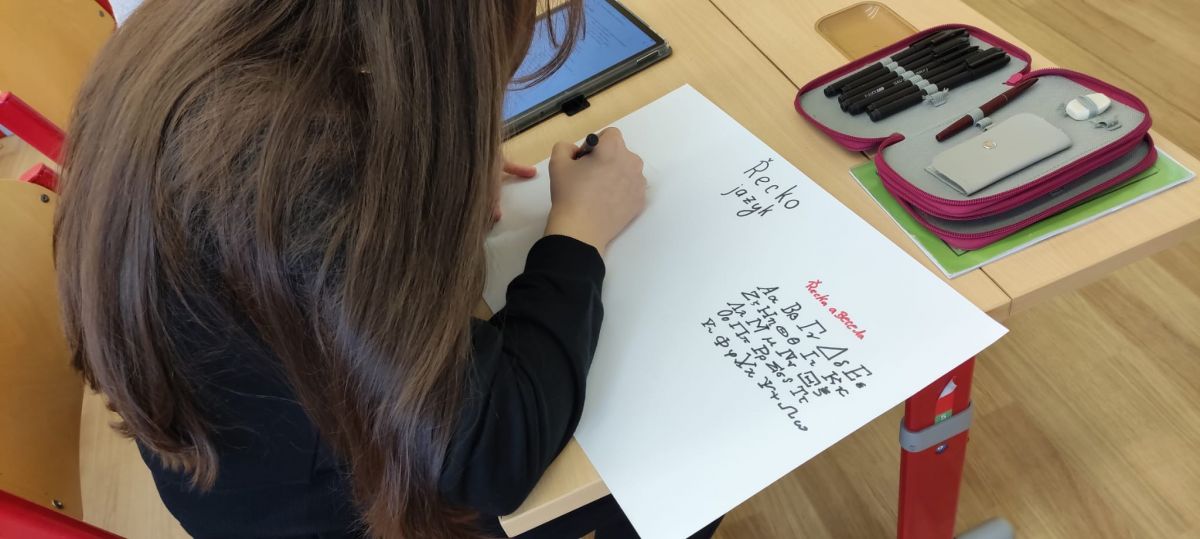 Řecko
jazyk
Řecká aBeceda
Αα Ββ Γγ Δδ Εε
Ζζ Ηη Θθ Ιι Κκ
Λλ Μμ Νν Ξξ
Οο Ππ Ρρ Σσς Ττ
Υυ Φφ Χχ Ψψ Ωω